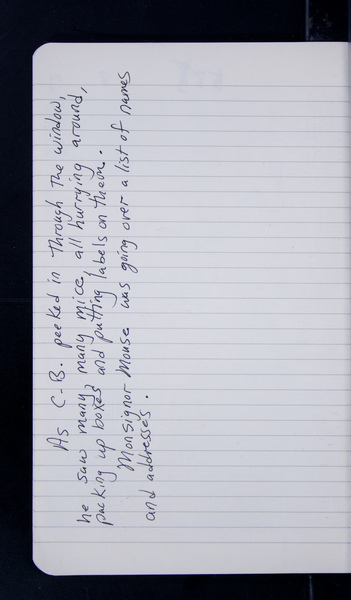 As C-B. peeked in through the window,
he saw many many mice, all hurrying around,
packing up boxes and putting labels on them.
Monsignor Mouse was going over a list of names
and addresses.